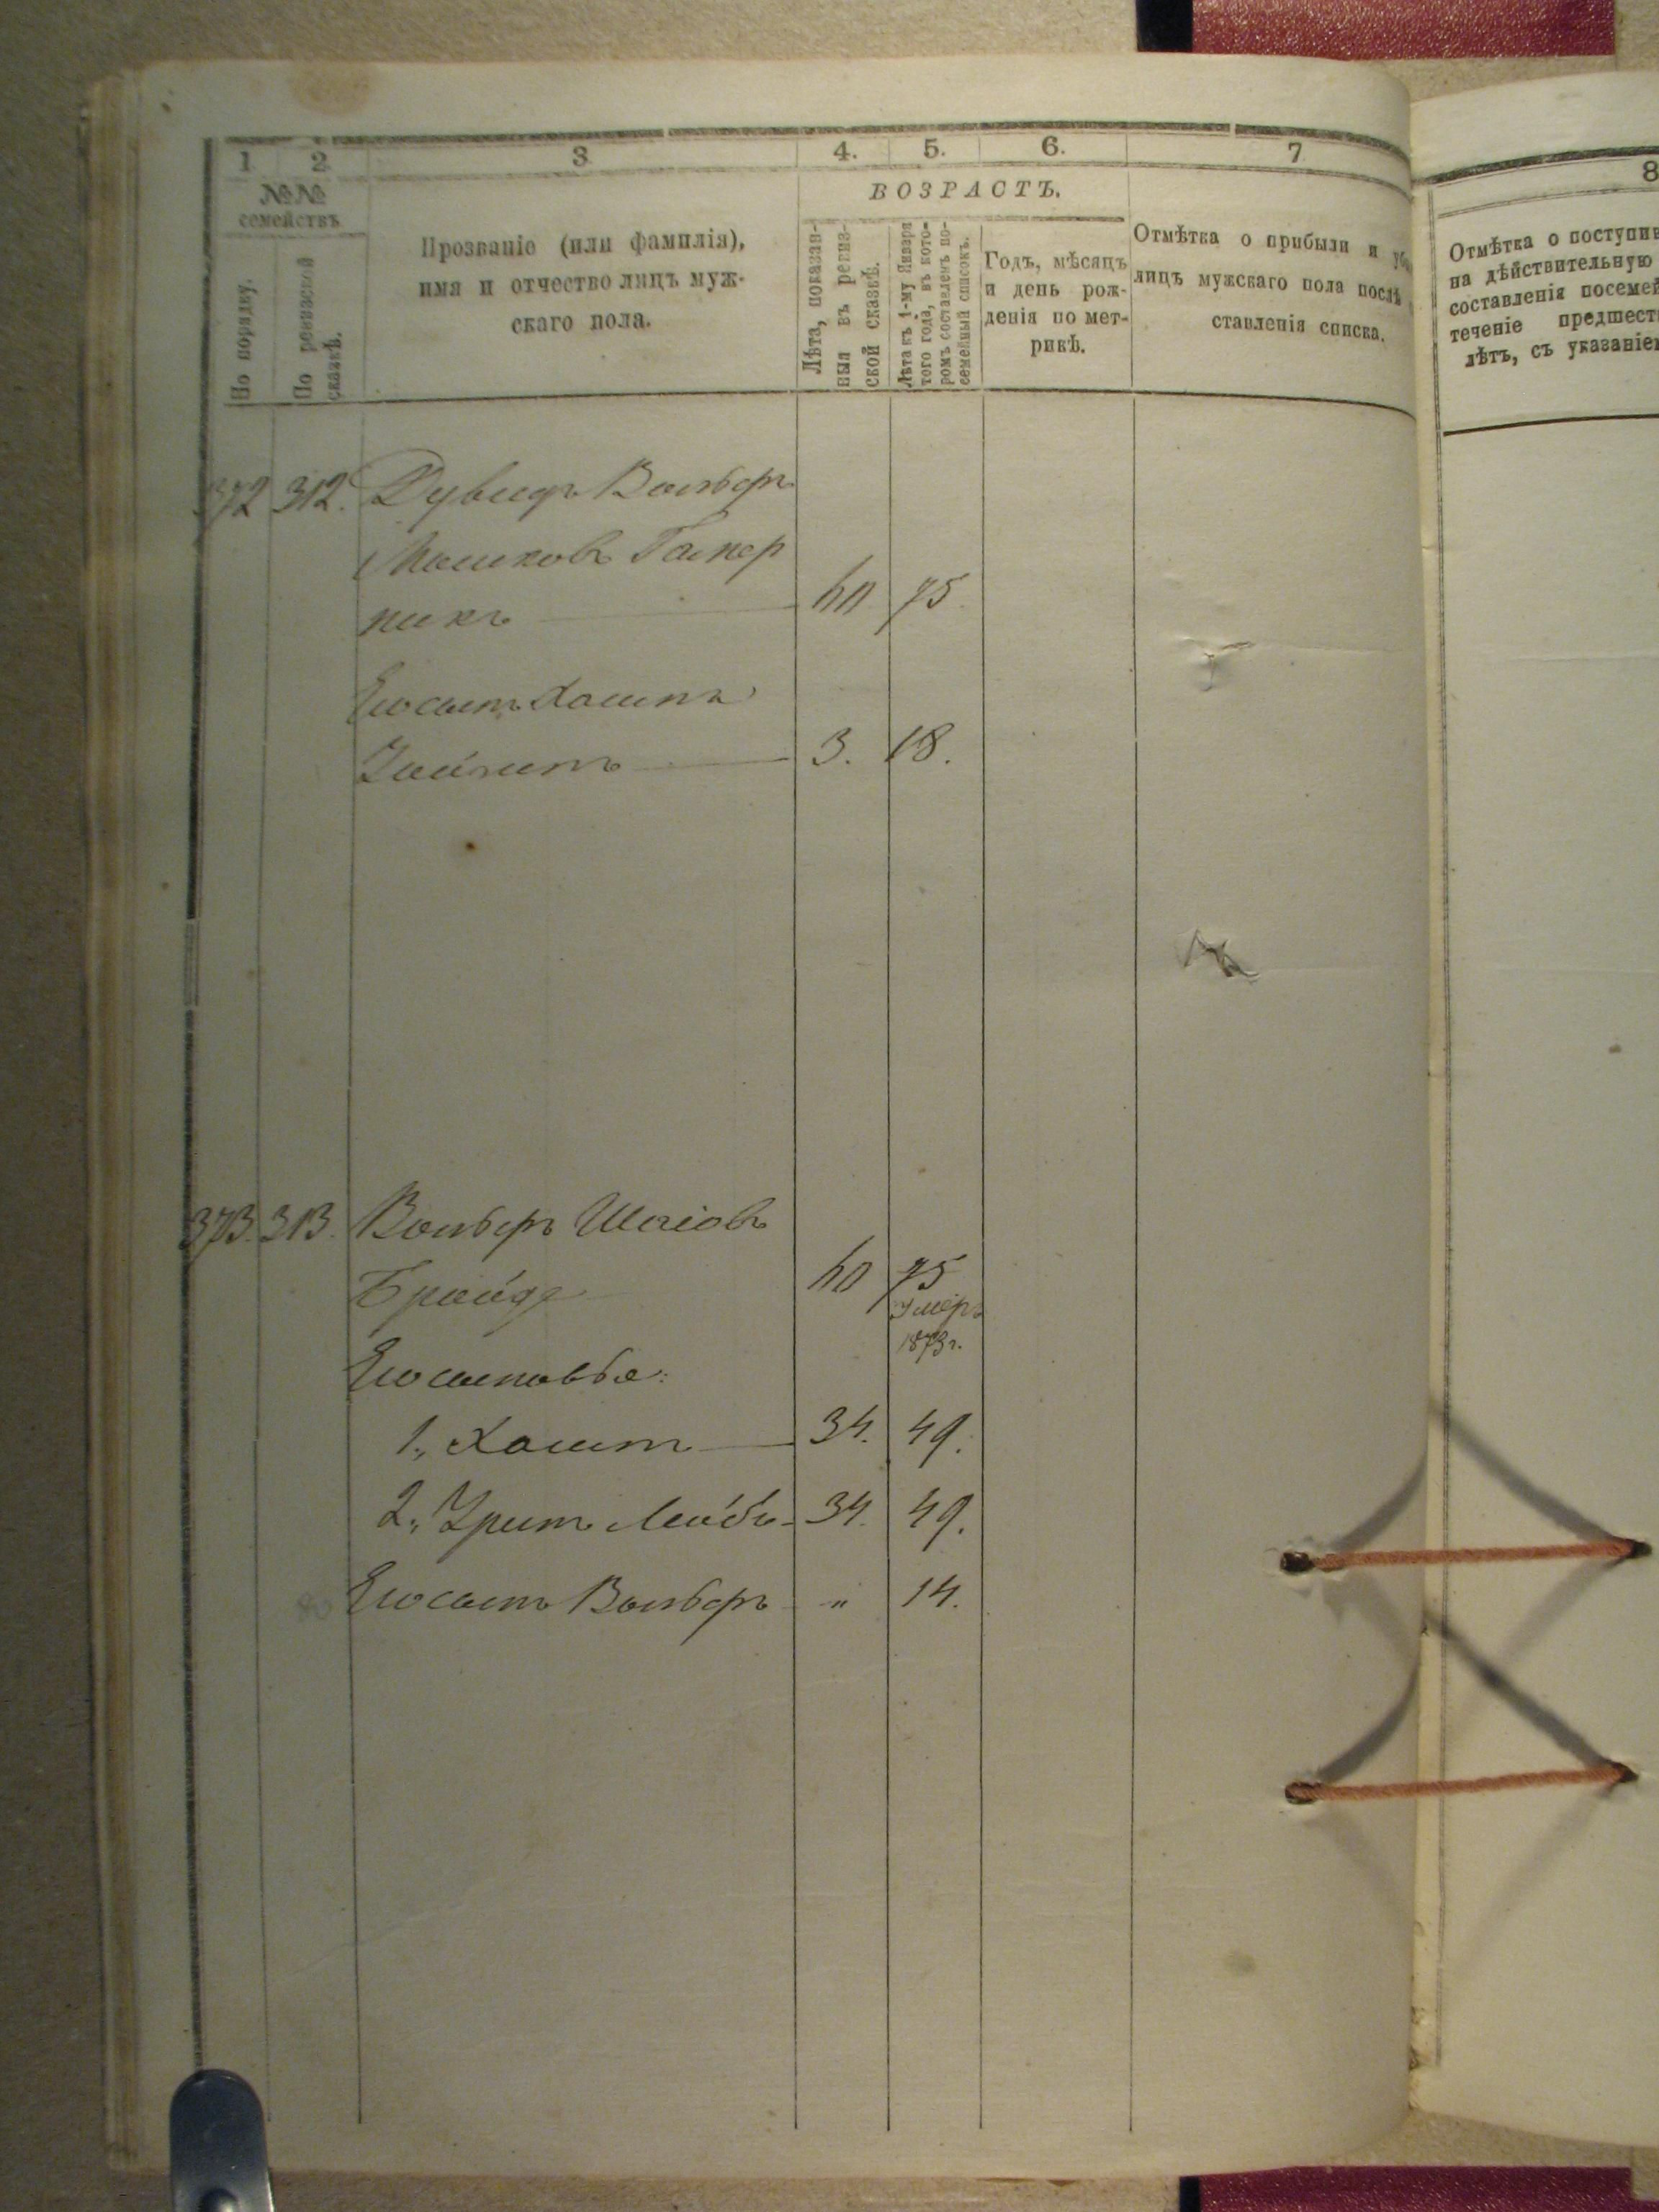 1
2
3
4.
5.
6.
7
8
№№
семействъ
По порядку.
По ревизской
сказкѣ.
Прозваніе (или фамилія),
имя и отчество лицъ муж-
скаго пола.
ВОЗРАСТЪ.
Лѣта, показан-
ныя въ ревиз-
ской сказкѣ.
Лѣта къ 1-му Января
того года, въ кото-
ромъ составленъ по-
семейный списокъ.
Годъ, мѣсяцъ
и день рож-
денія по мет-
рикѣ.
Отмѣтка о прибыли и
лицъ мужскаго пола послѣ
ставленія списка.
Отмѣтка о поступив
на дѣйствительную
составленія посемей
теченіе предшест
лѣтъ, съ указаніе
372 312. Дувидъ Вольфъ
Мошковъ
никъ 60 75
Его сынъ Хаимъ
3. 18.
373. 313. Вольфъ Шаіовъ
Бройде 60 75
Умеръ
1873 г.
Его сыновья:
1., Хаимъ 34. 49.
2., Лейба 34. 49.
Его сынъ Вольфъ " 14.